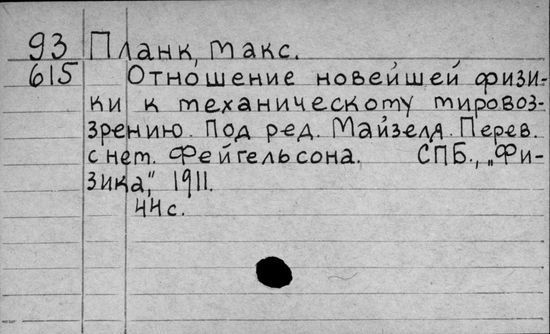 93 Планк, Макс.
615 Отношение новейшей физи-
ки к механическому мировоз-
зрению. Под ред. Майзеля. Перев.
с нет. Фейгельсона. СПБ., „Фи-
зика," 1911.
44 с.